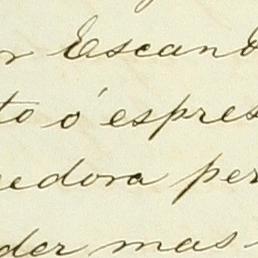 r Escan
to ó espres
edora per
der mas